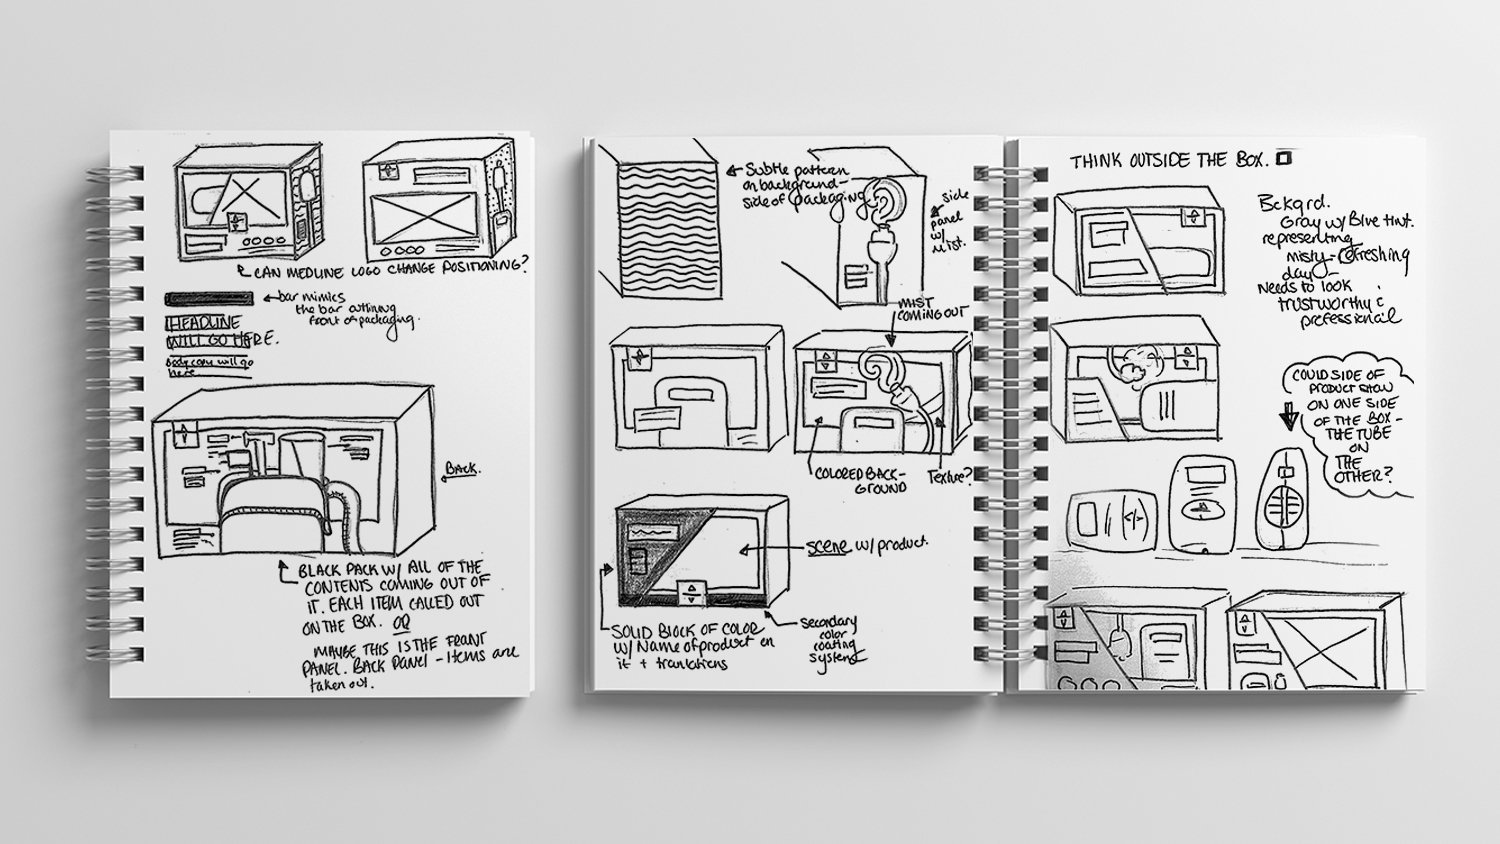 CAN MEDLINE LOGO CHANGE POSITIONING?
bar mimics
the bar outlining
front of packaging.
HEADLINE
WILL GO HERE.
Body copy will go
here
BACK.
BLACK PACK W/ ALL OF THE
CONTENTS COMING OUT OF
IT. EACH ITEM CALLED OUT
ON THE BOX. OR
MAYBE THIS IS THE FRONT
PANEL. BACK PANEL - ITEMS are
taken out.
Subtle pattern
on background -
side of packaging
side
panel
w/
mist.
MIST
COMING OUT
COLORED BACK-
GROUND
Texture?
SCENE w/ product.
SOLID BLOCK OF COLOR
W/ Name of product on
it + translations
Secondary
color
coating
systems
THINK OUTSIDE THE BOX.
Bckgrd.
Gray w/ Blue tint.
representing
misty - refreshing
day -
Needs to look
trustworthy &
professional
COULD SIDE OF
PRODUCT SHOW
ON ONE SIDE
OF THE BOX -
THE TUBE
ON
THE
OTHER?